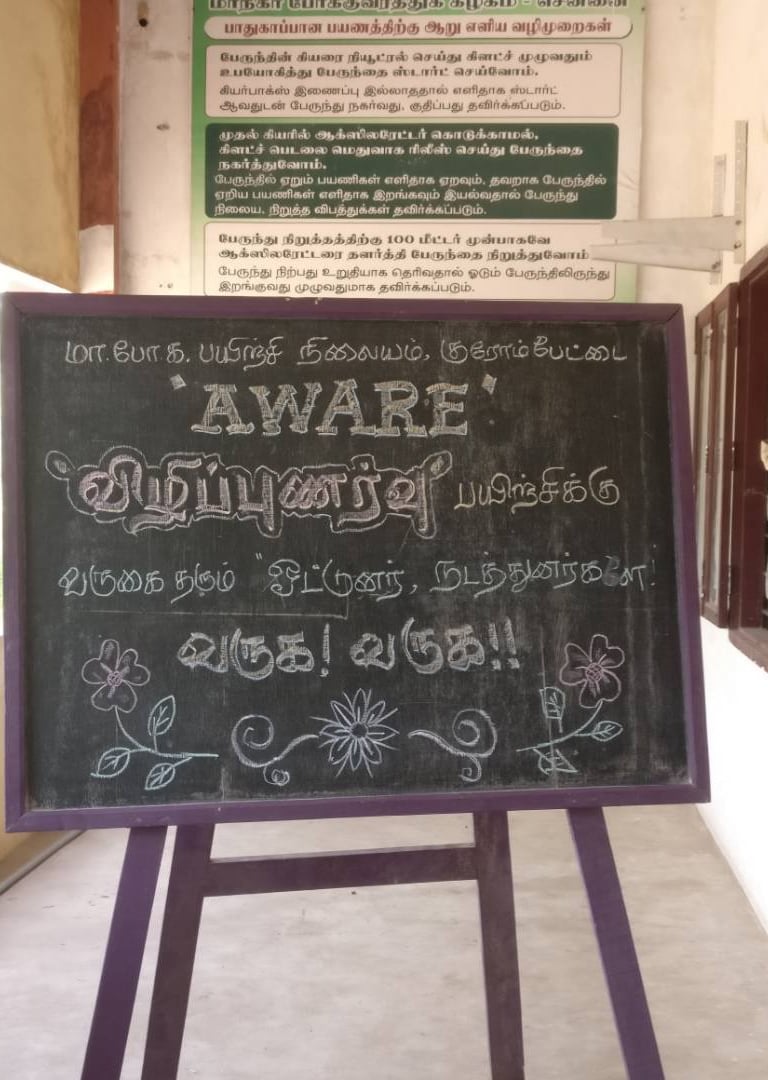 மாநகர் போக்குவரத்துக் கழகம் - சென்னை
பாதுகாப்பான பயணத்திற்கு ஆறு எளிய வழிமுறைகள்
பேருந்தின் கியரை நியூட்ரல் செய்து கிளட்ச் முழுவதும்
உபயோகித்து பேருந்தை ஸ்டார்ட் செய்வோம்.
கியர்பாக்ஸ் இணைப்பு இல்லாததால் எளிதாக ஸ்டார்ட்
ஆவதுடன் பேருந்து நகர்வது, குதிப்பது தவிர்க்கப்படும்.
முதல் கியரில் ஆக்ஸிலரேட்டர் கொடுக்காமல்,
கிளட்ச் பெடலை மெதுவாக ரிலீஸ் செய்து பேருந்தை
நகர்த்துவோம்.
பேருந்தில் ஏறும் பயணிகள் எளிதாக ஏறவும், தவறாக பேருந்தில்
ஏறிய பயணிகள் எளிதாக இறங்கவும் இயல்வதால் பேருந்து
நிலைய, நிறுத்த விபத்துக்கள் தவிர்க்கப்படும்.
பேருந்து நிறுத்தத்திற்கு 100 மீட்டர் முன்பாகவே
ஆக்ஸிலரேட்டரை தளர்த்தி பேருந்தை நிறுத்துவோம்
பேருந்து நிற்பது உறுதியாக தெரிவதால் ஓடும் பேருந்திலிருந்து
இறங்குவது முழுவதுமாக தவிர்க்கப்படும்.
மா.போ.க. பயிற்சி நிலையம், குரோம்பேட்டை
'AWARE'
'விழிப்புணர்வு' பயிற்சிக்கு
வருகை தரும் "ஓட்டுனர், நடத்துனர்களே!
வருக! வருக!!